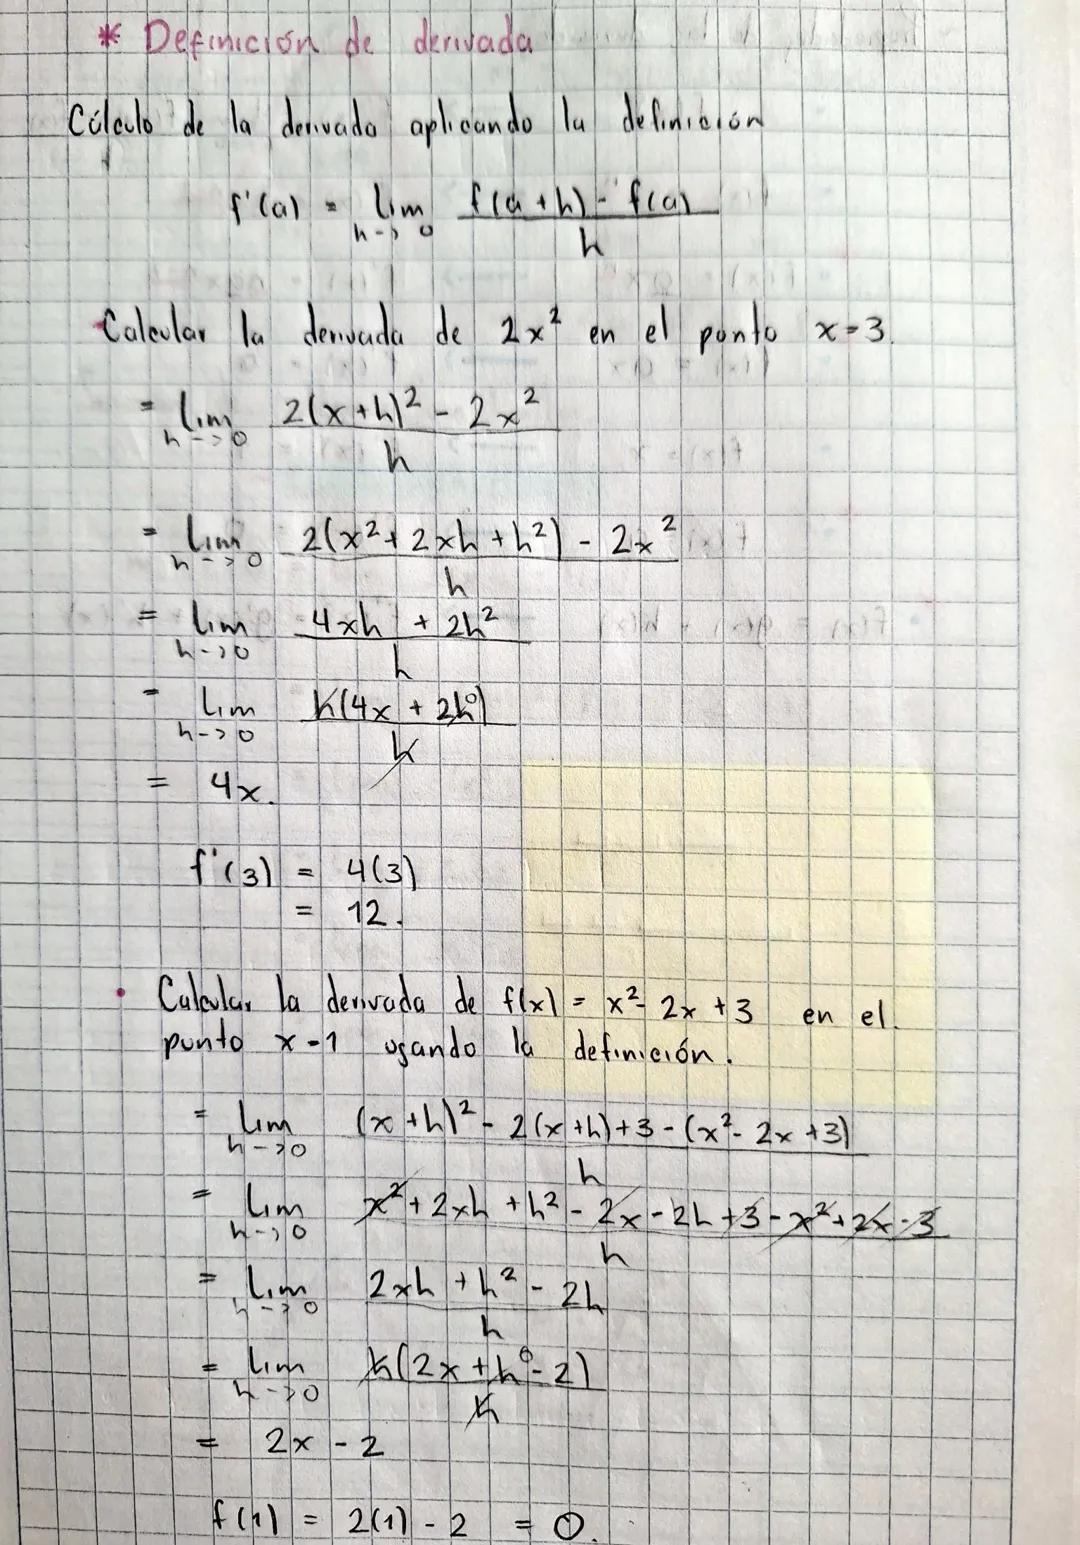 * Definición de derivada
Cálculo de la derivada aplicando la definición
f'(a) = lim f(a + h) - f(a)
h->0 h
Calcular la derivada de 2x² en el punto x=3.
= lim 2(x+h)² - 2x²
h->0 h
= lim 2(x²+2xh+h²) - 2x²
h->0 h
= lim 4xh + 2h²
h->0 h
= lim h(4x + 2h⁰)
h->0 h
= 4x.
f'(3) = 4(3)
= 12.
• Calcular la derivada de f(x) = x²- 2x +3 en el
punto x=1 usando la definición.
= lim (x+h)² - 2(x+h)+3-(x²- 2x+3)
h->0 h
= lim x²+2xh+h²-2x-2h+3-x²+2x-3
h->0 h
= lim 2xh + h² - 2h
h->0 h
= lim h(2x+h⁰-2)
h->0 h
= 2x - 2
f(1) = 2(1) - 2 = 0.